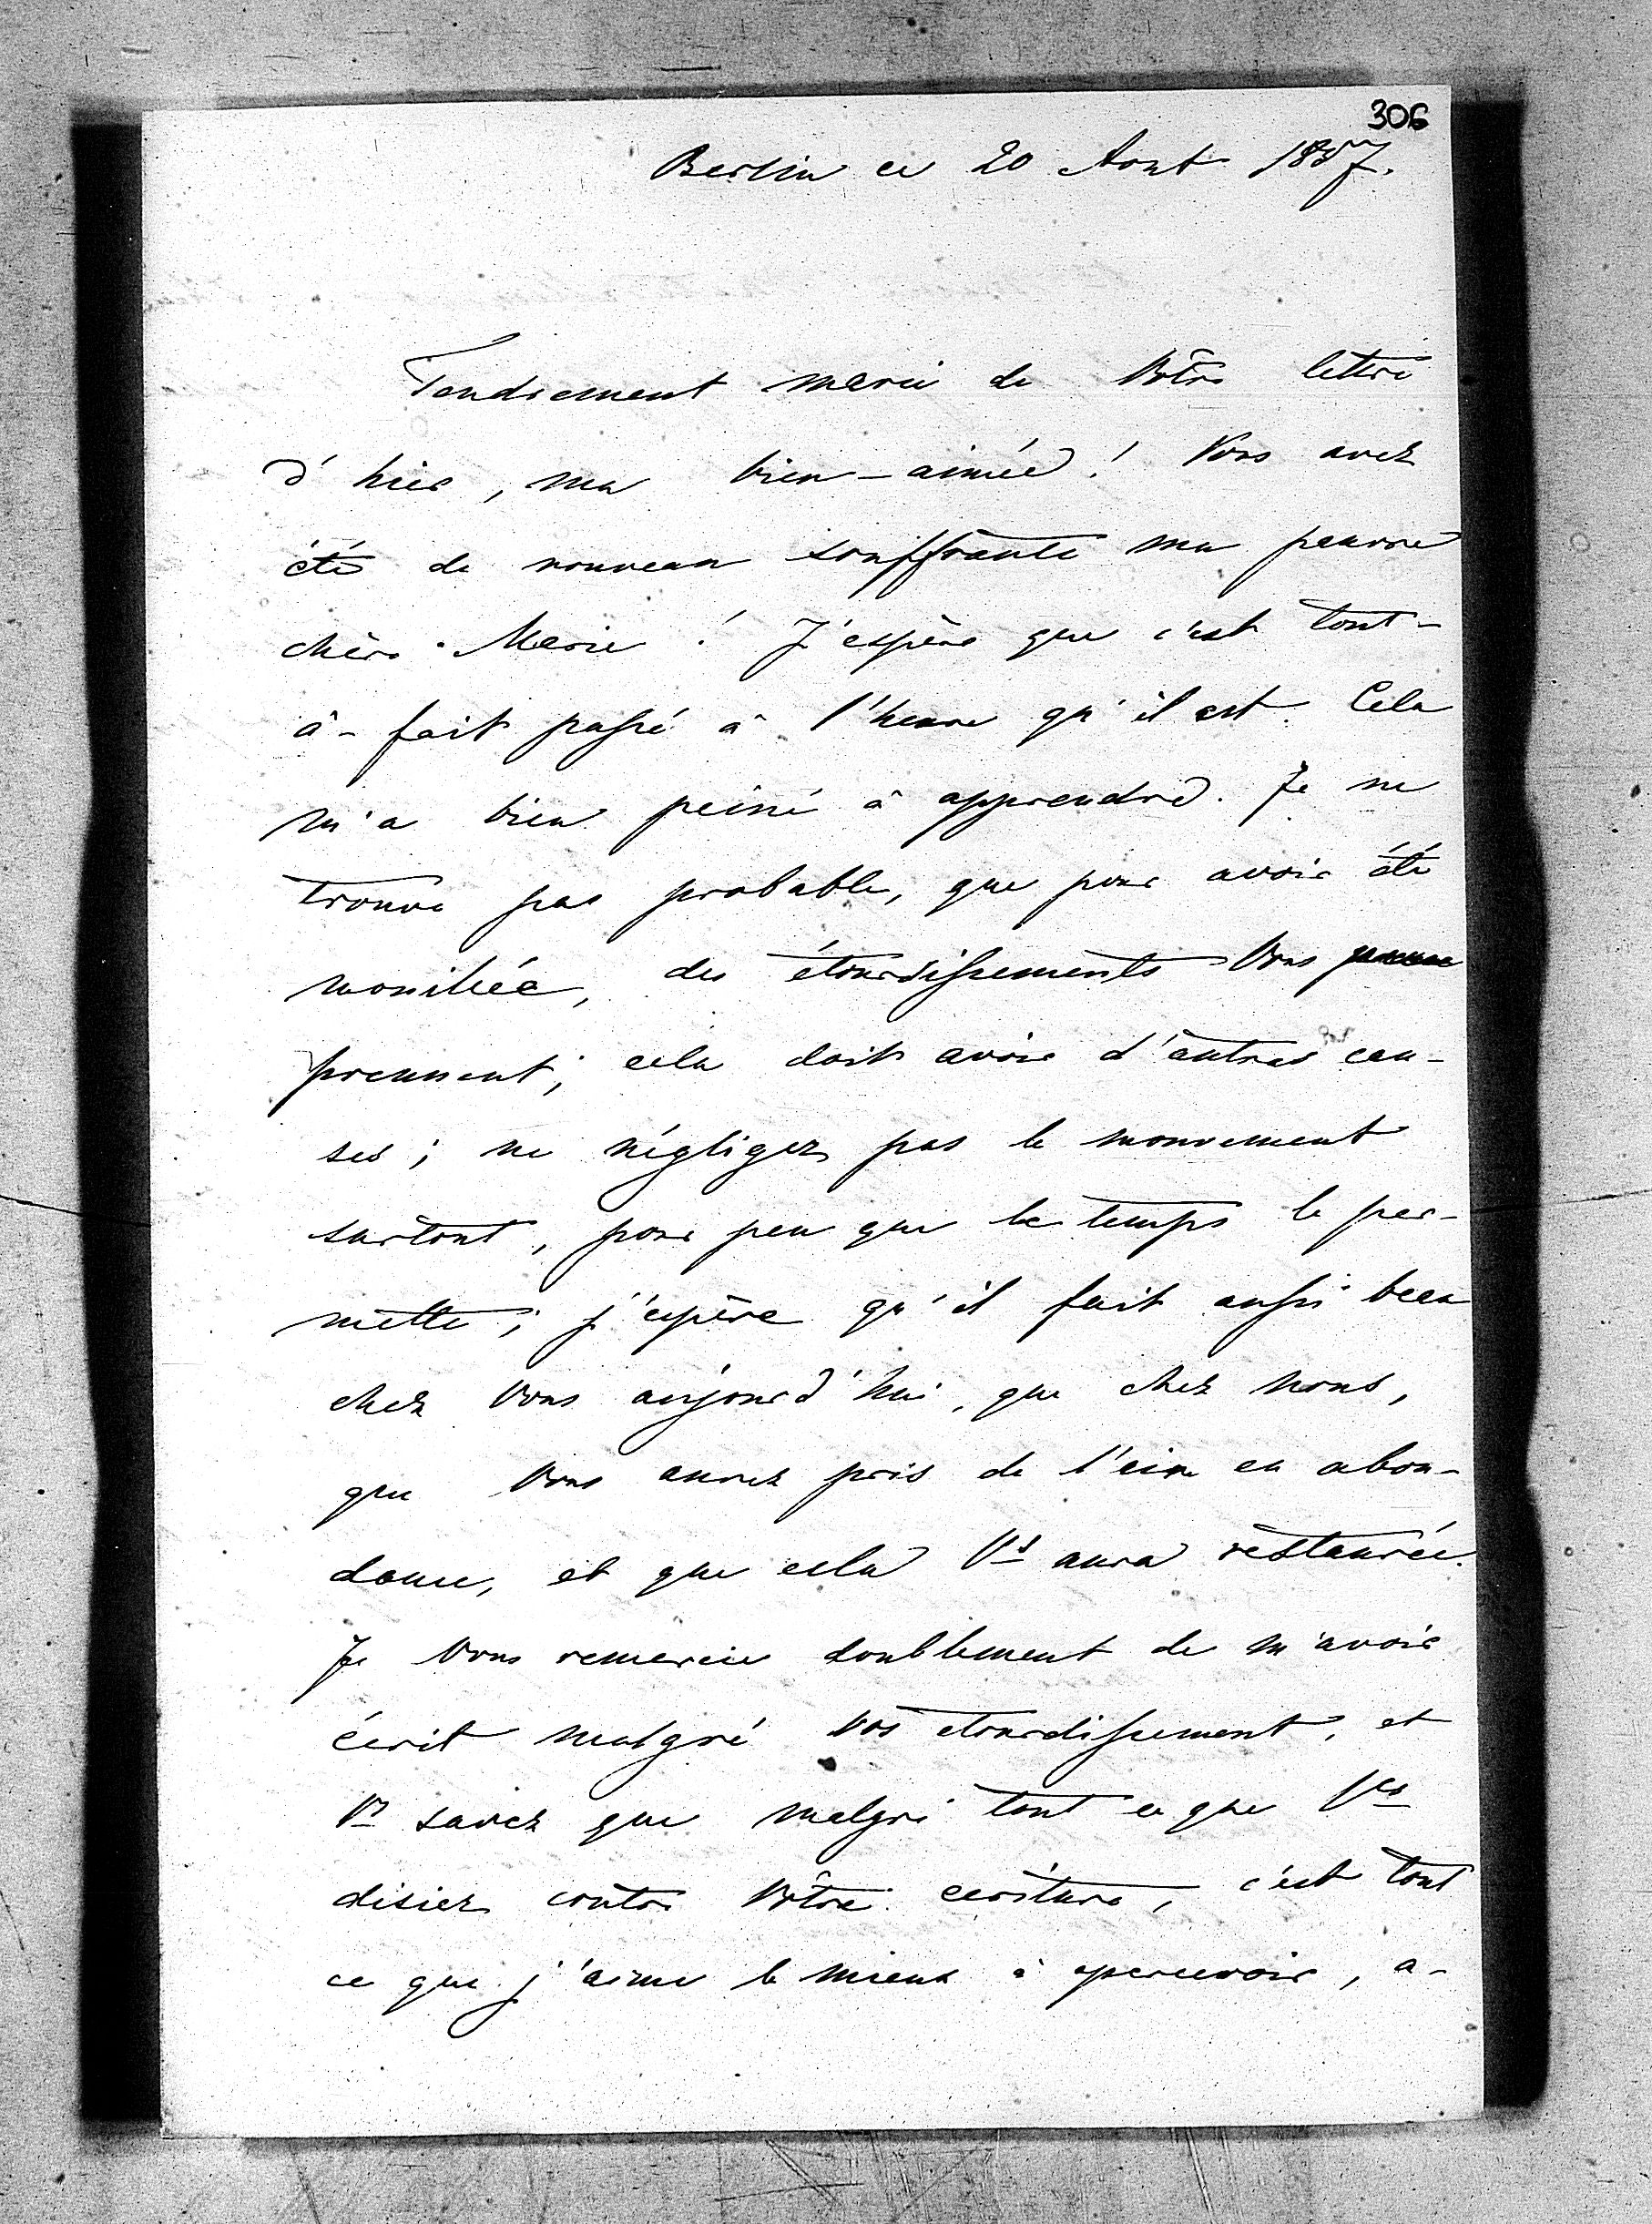 306
Berlin ce 20 Aout 1857.
Tendrement merci de Vôtre lettre
d'hier, ma bien-aimée! Vous avez
été de nouveau souffrante ma pauvre
chère Marie! J'espère que c'est tout-
à-fait passé à l'heure qu'il est. Cela
m'a bien peiné à apprendre. Je ne
trouve pas probable, que pour avoir été
mouillée, des étourdissements Vous
prennent; cela doit avoir d'autres cau-
ses; ne négligez pas le mouvement
surtout, pour peu que le temps le per-
mette; j'espère qu'il fait aussi beau
chez Vous aujourd'hui, que chez nous,
que Vous aurez pris de l'air en abon-
dance, et que cela Vs aura restaurée.
Je Vous remercie doublement de m'avoir
écrit malgré vos étourdissement, et
Vs savez que malgré tout ce que Vs
disiez contre Vôtre écriture, c'est tout
ce que j'aime le mieux à apercevoir, a-